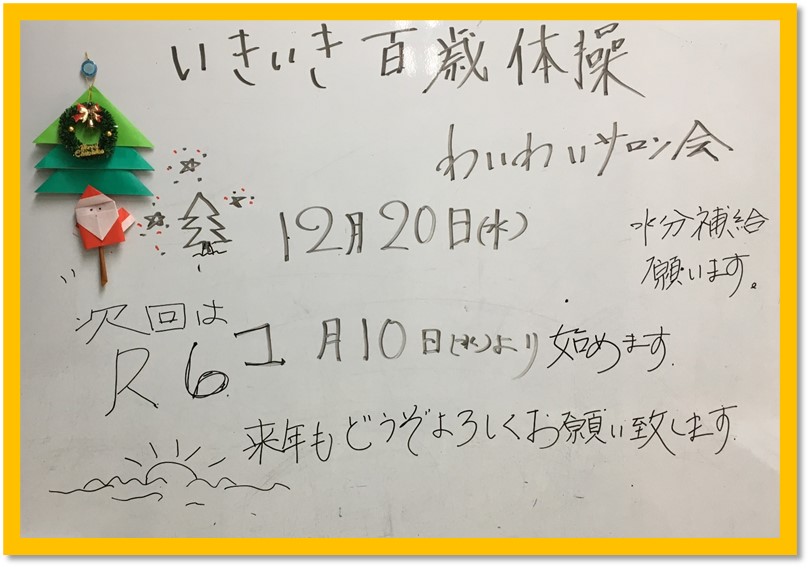 いきいき百歳体操
わいわいサロン会
12月20日(水)
水分補給
願います。
次回は
R6 1月10日(水)より始めます.
来年もどうぞよろしくお願い致します.